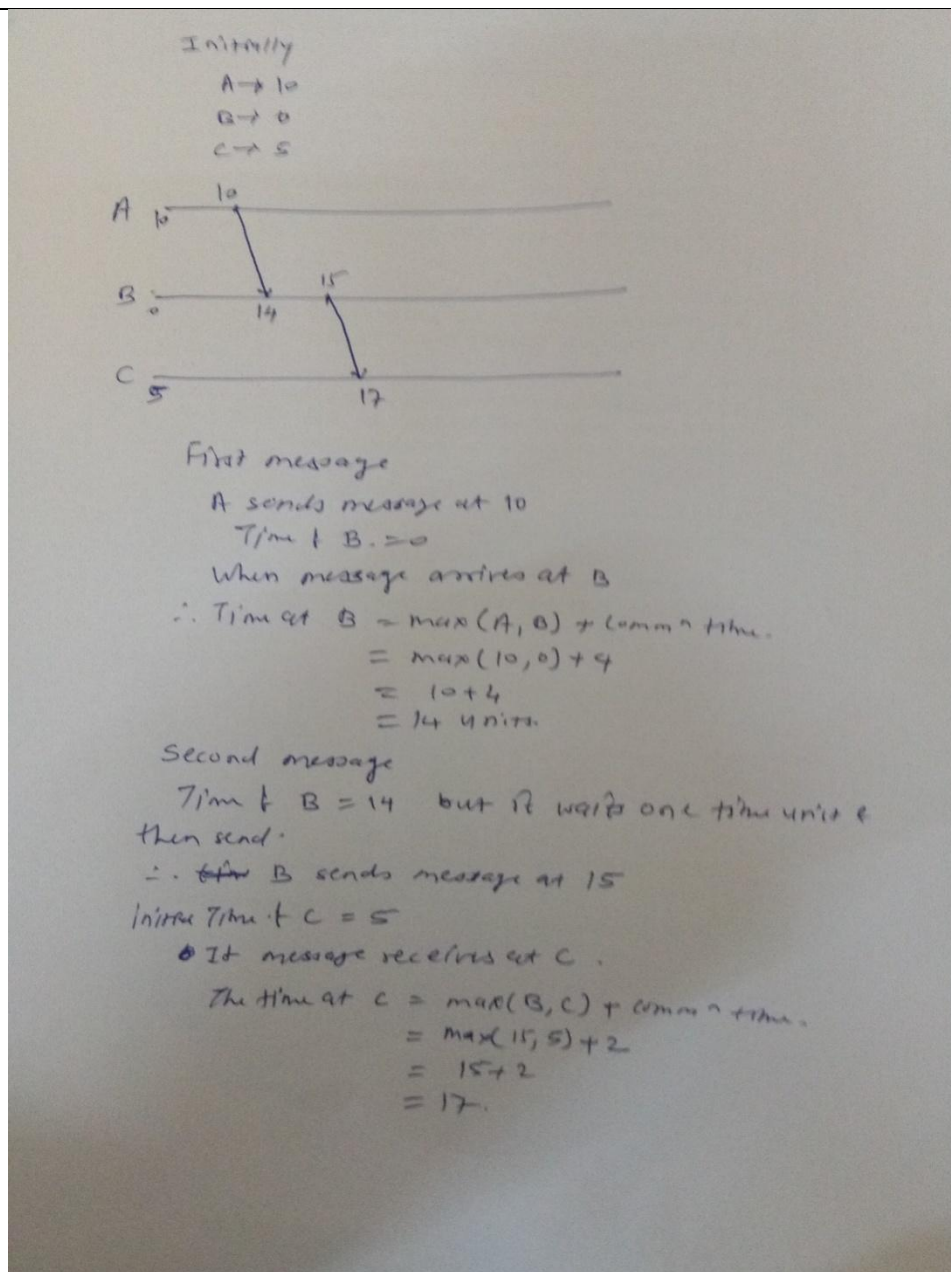 Initially
A → 10
B → 0
C → 5
10
A 10
15
B 0
14
C 5
17
First message
A sends message at 10
Time of B. = 0
When message arrives at B
∴ Time at B = max(A, B) + commn time.
= max(10, 0) + 4
= 10 + 4
= 14 units.
Second message
Time of B = 14 but it waits one time unit &
then send.
∴ B sends message at 15
Initial Time of C = 5
If message receives at C.
The time at C = max(B, C) + commn time.
= max(15, 5) + 2
= 15 + 2
= 17.